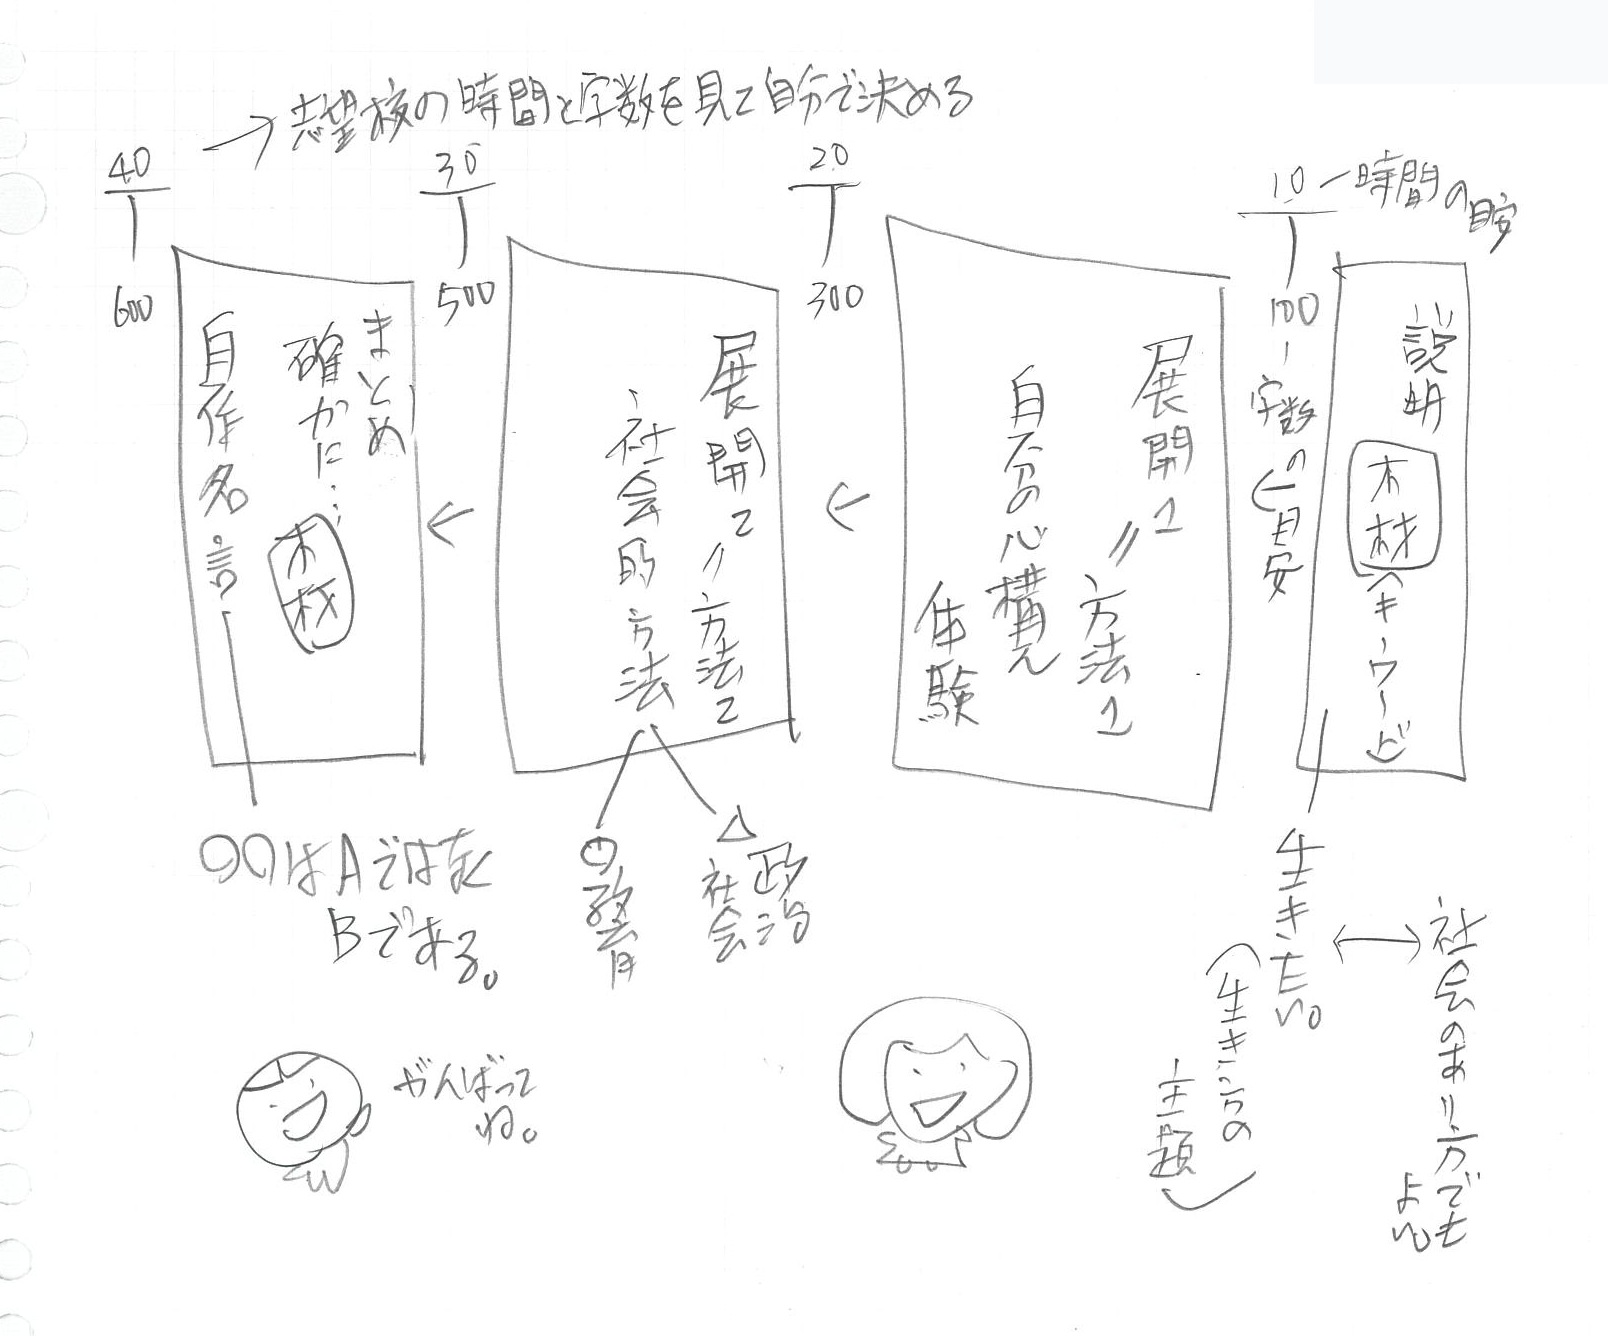 →志望校の時間と字数を見て自分で決める
10 ー時間の目安
100 ー字数の目安
説明
木材(キーワード
生きたい。
(生き方の
主題)
↔
社会のあり方でも
よい。
←
20
300
展開1=方法1
自分の心構え
体験
←
30
500
展開2=方法2
社会的方法
△政治
社会
◎教育
←
40
600
まとめ
確かに…木材
自作名言
○○はAではなく
Bである。
がんばって
ね。